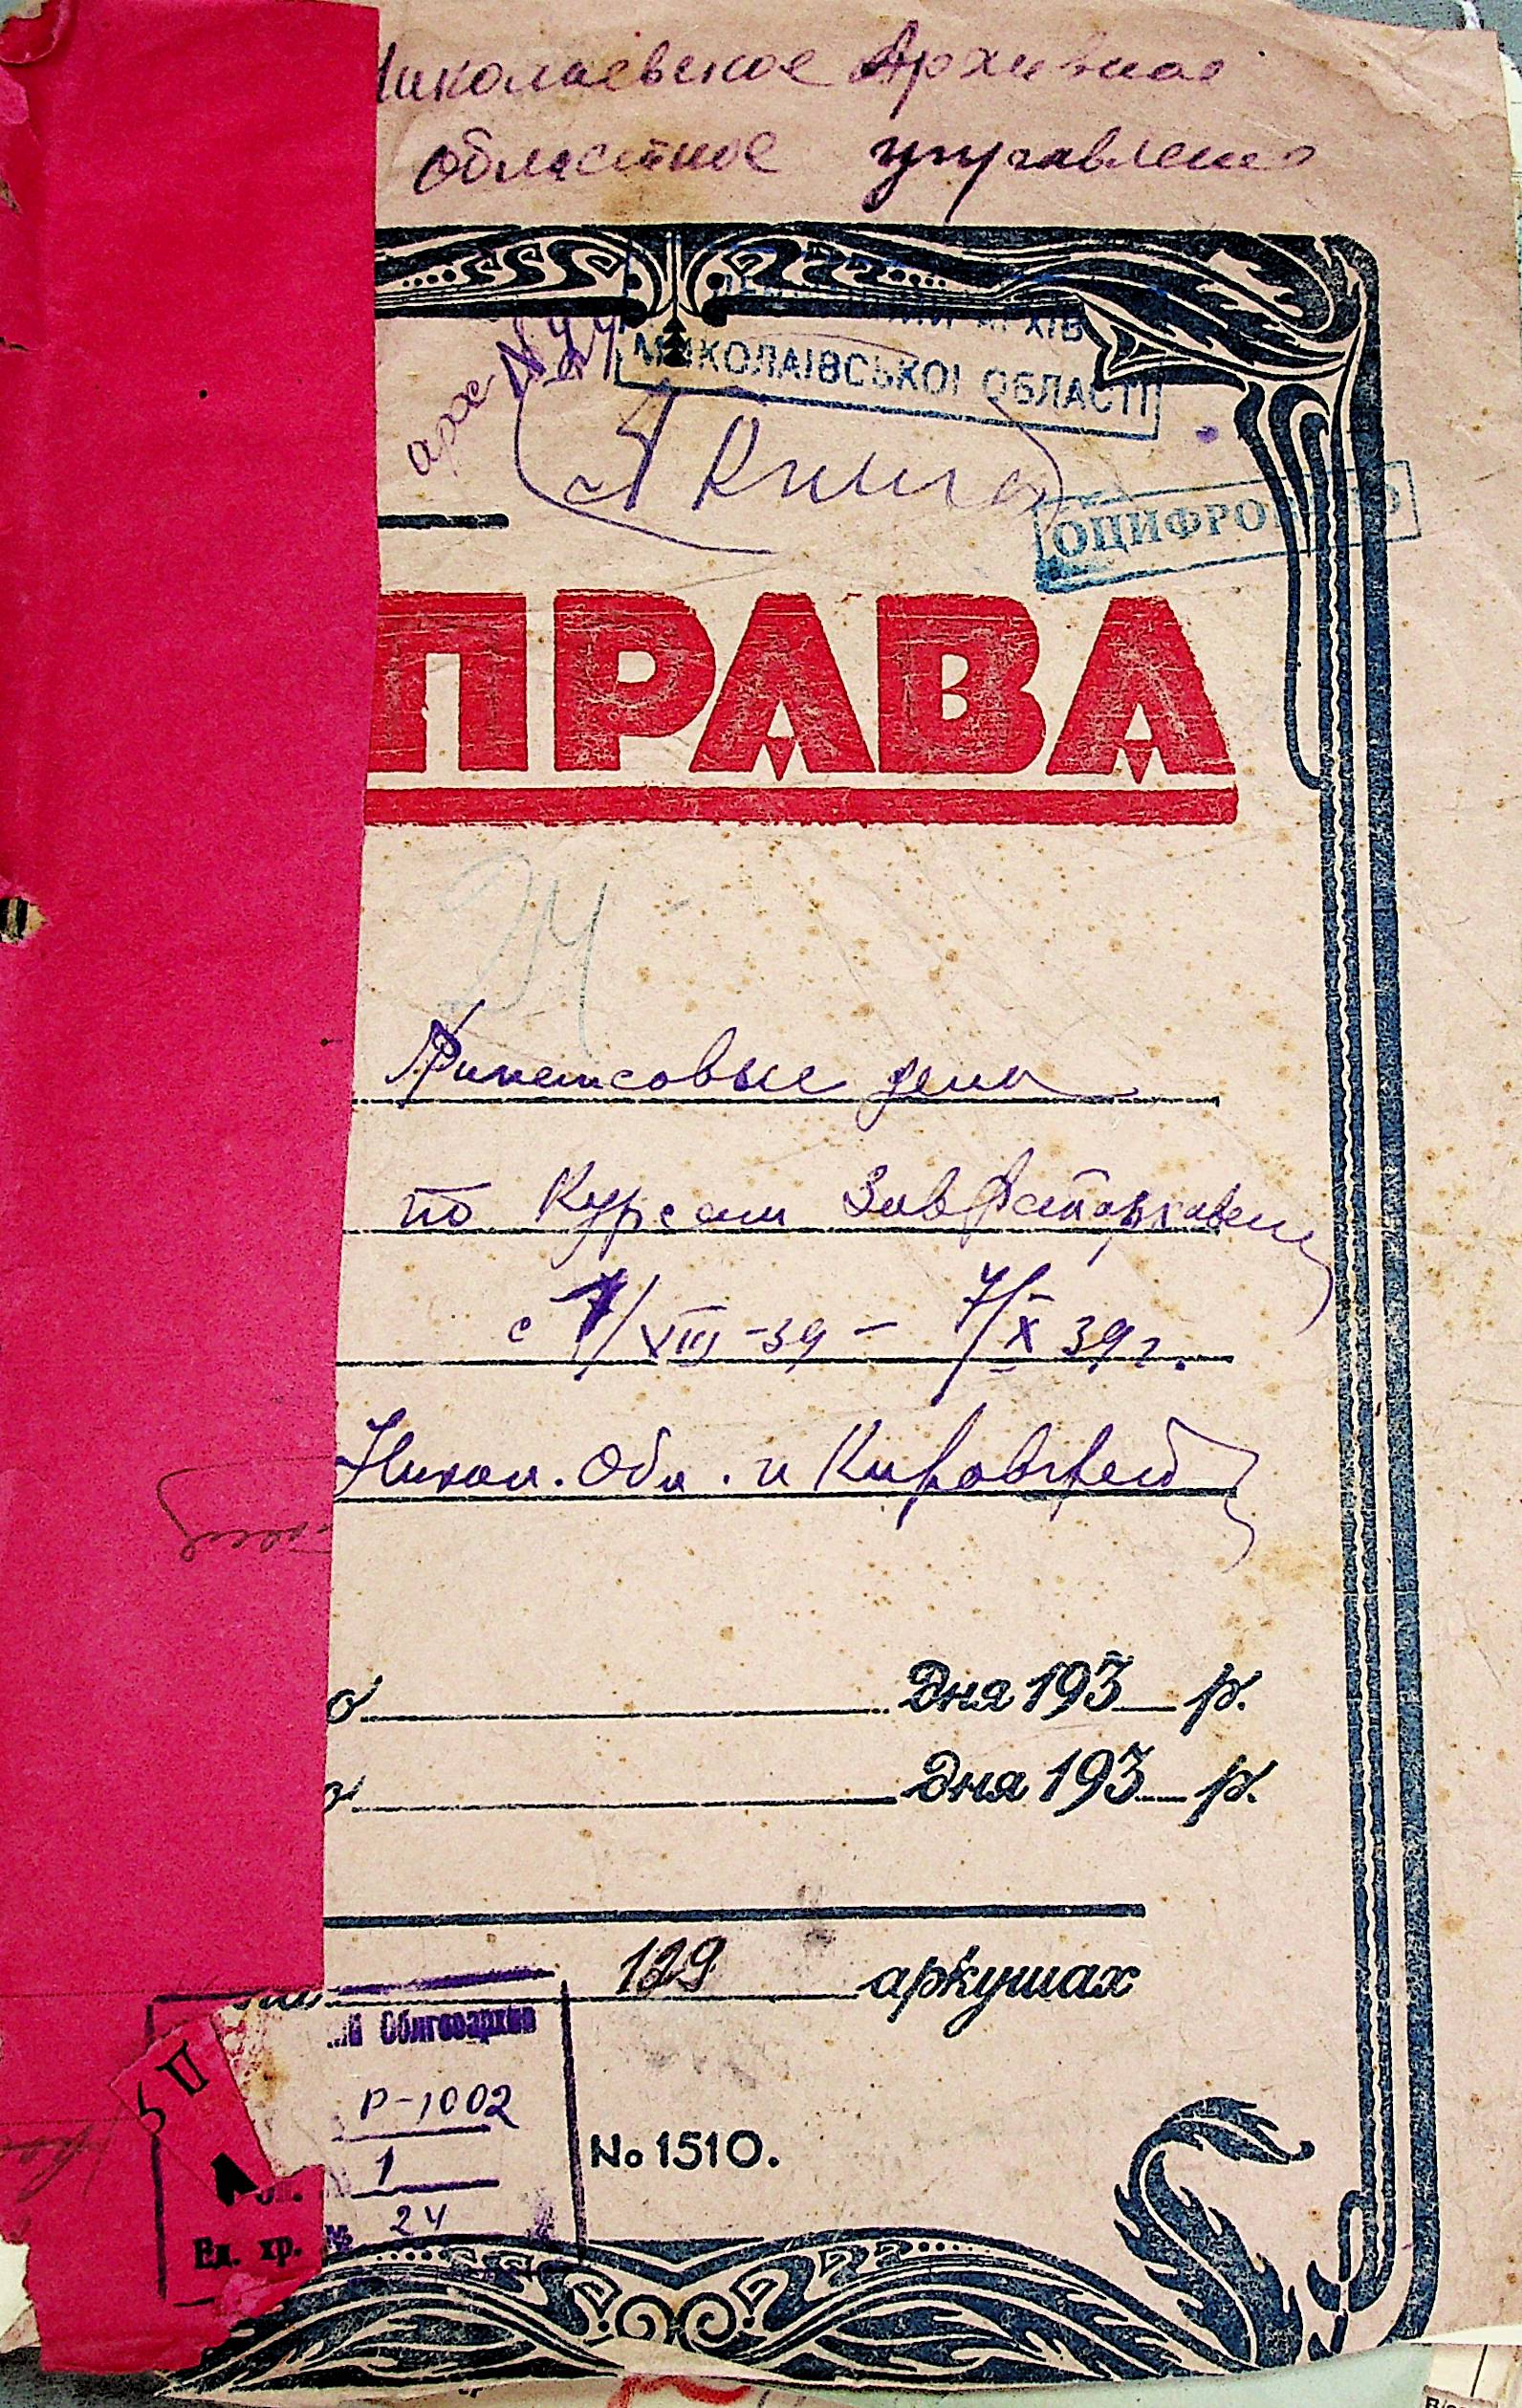 Николаевское Архивное
областное управлени
АРХІВ
МИКОЛАЇВСЬКОЇ ОБЛАСТІ
арх. №24
Книга
ОЦИФРО
ПРАВА
24
Финансовые дела
по Курсам Зав
с 7/VIII-39 – 7/X 39 г.
Никол. Обл. и Кировгрей
о дня 193 р.
о дня 193 р.
129 аркушах
Облгосархив
Р-1002
1
24
Ед. хр.
№ 1510.